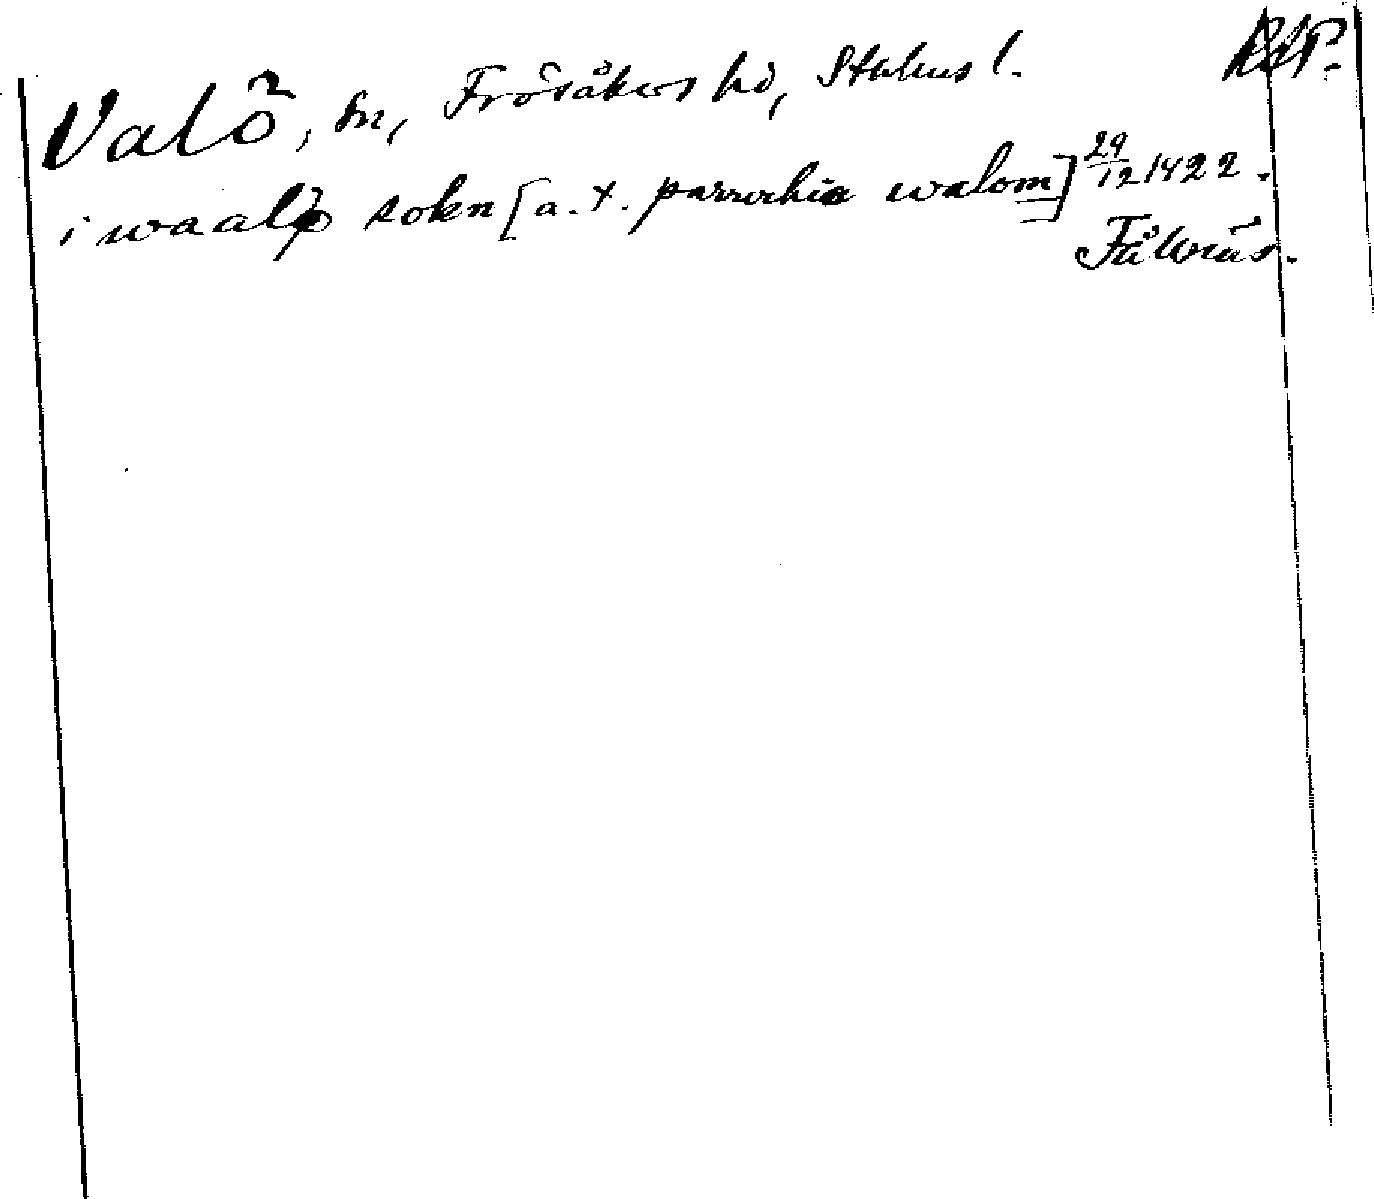 Valö, sn, Frösåkers hd, Sthlms l. RAP.
i waalø sokn [a. t. parrochia walom] 29/12 1422.
Fållnäs.